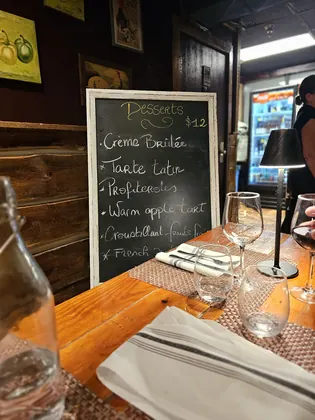 Desserts
$12
. Crème Brûlée
* Tarte tatin
. Profiteroles
. Warm apple tart
. Croustillant
* French